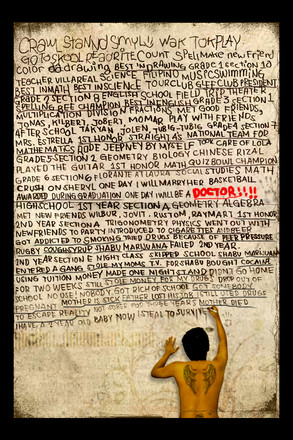 CRAWL STAND SMYLL WALK TOK PLAY
GO TO SKOOL READ RITE COUNT SPELL MAKE NEW FRIEND
COLOR DRAWING BEST IN DRAWING GRADE 1 SECTION 10
TEACHER VILLAREAL SCIENCE FILIPINO MUSIC SWIMMING
BEST IN MATH BEST IN SCIENCE TOUR CLUB GLEE CLUB PRESIDENT
GRADE 2 SECTION 9 ENGLISH SCHOOL FIELD TRIP THEATER
SPELLING BEE CHAMPION BEST IN ENGLISH GRADE 3 SECTION 1
MULTIPLICATION DIVISION FRACTIONS MET GOOD FRIENDS
TOMAS, KILBERT, JOBERT, MOMAR PLAY WITH FRIENDS
AFTER SCHOOL TAKYAN JOLEN JUBIS-JUBIS GRADE 4 SECTION 7
MRS. ESTRELLA 1ST HONOR STRAIGHT AS NATIONAL TEAM FOR
MATHEMATICS RODE JEEPNEY BY MYSELF TOOK CARE OF LOLA
GRADE 5 SECTION 2 GEOMETRY BIOLOGY CHINESE RIZAL
PLAYED THE GUITAR 1ST HONOR MATH QUIZ BOWL CHAMPION
GRADE 6 SECTION 6 FLORANTE AT LAURA SOCIAL STUDIES MATH
CRUSH ON SHERYL ONE DAY I WILL MARRY HER BASKETBALL
AWARDED DURING GRADUATION ONE DAY I WILL BE A DOCTOR!!!!
HIGHSCHOOL 1ST YEAR SECTION 2 GEOMETRY ALGEBRA
MET NEW FRIENDS WILBUR, JOVIT, RUSTOM, RAYMART 1ST HONOR
2ND YEAR SECTION 4 TRIGONOMETRY PHYSICS WENT OUT WITH
NEW FRIENDS TO PARTY INTRODUCED TO CIGARETTES AND BEER
GOT ADDICTED TO SMOKING TRIED DRUGS BECAUSE OF PEER PRESSURE
RUGBY COUGH SYRUP SHABU MARIJUANA FAILED 2ND YEAR
2ND YEAR SECTION 11 NIGHT CLASS SKIPPED SCHOOL SHABU MARIJUANA
ENTERED A GANG STOLE MY MOM'S T.V. FOR SHABU BOUGHT COCAINE
USING TUITION MONEY MADE ONE NIGHT STAND DIDN'T GO HOME
FOR TWO WEEKS STILL STOLE MONEY FOR MY DRUGS DROP OUT OF
SCHOOL NO USE! NOBODY GOT RICH OF SCHOOL GOT SOMEBODY
PREGNANT MOTHER IS SICK FATHER LOST HIS JOB I STILL USED DRUGS
TO ESCAPE REALITY NOT SURE NO MORE YEARS MOTHER DIED
I HAVE A 2 YEAR OLD BABY NOW I STEAL TO SURVIVE